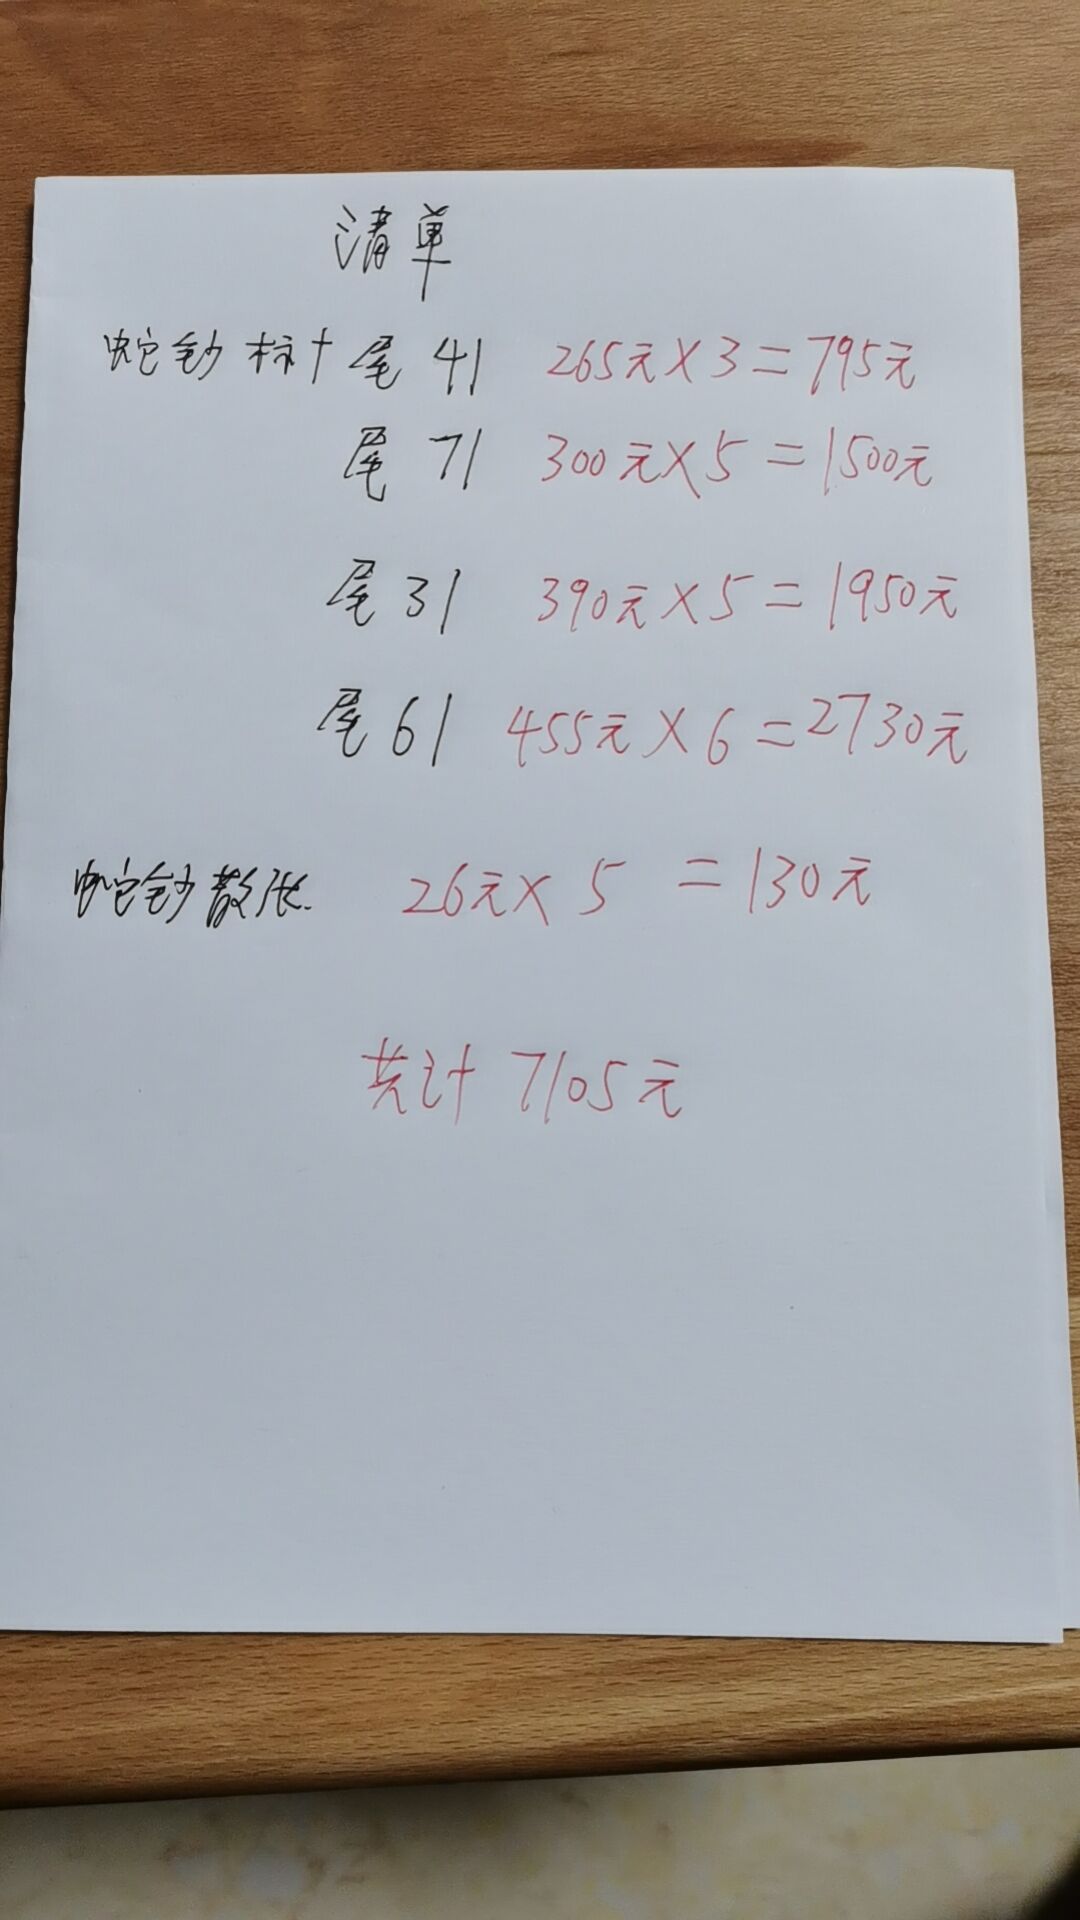 清单
蛇钞标十 尾 41 265元×3=795元
尾 71 300元×5=1500元
尾 31 390元×5=1950元
尾 61 455元×6=2730元
蛇钞散张. 26元×5 =130元
共计 7105元